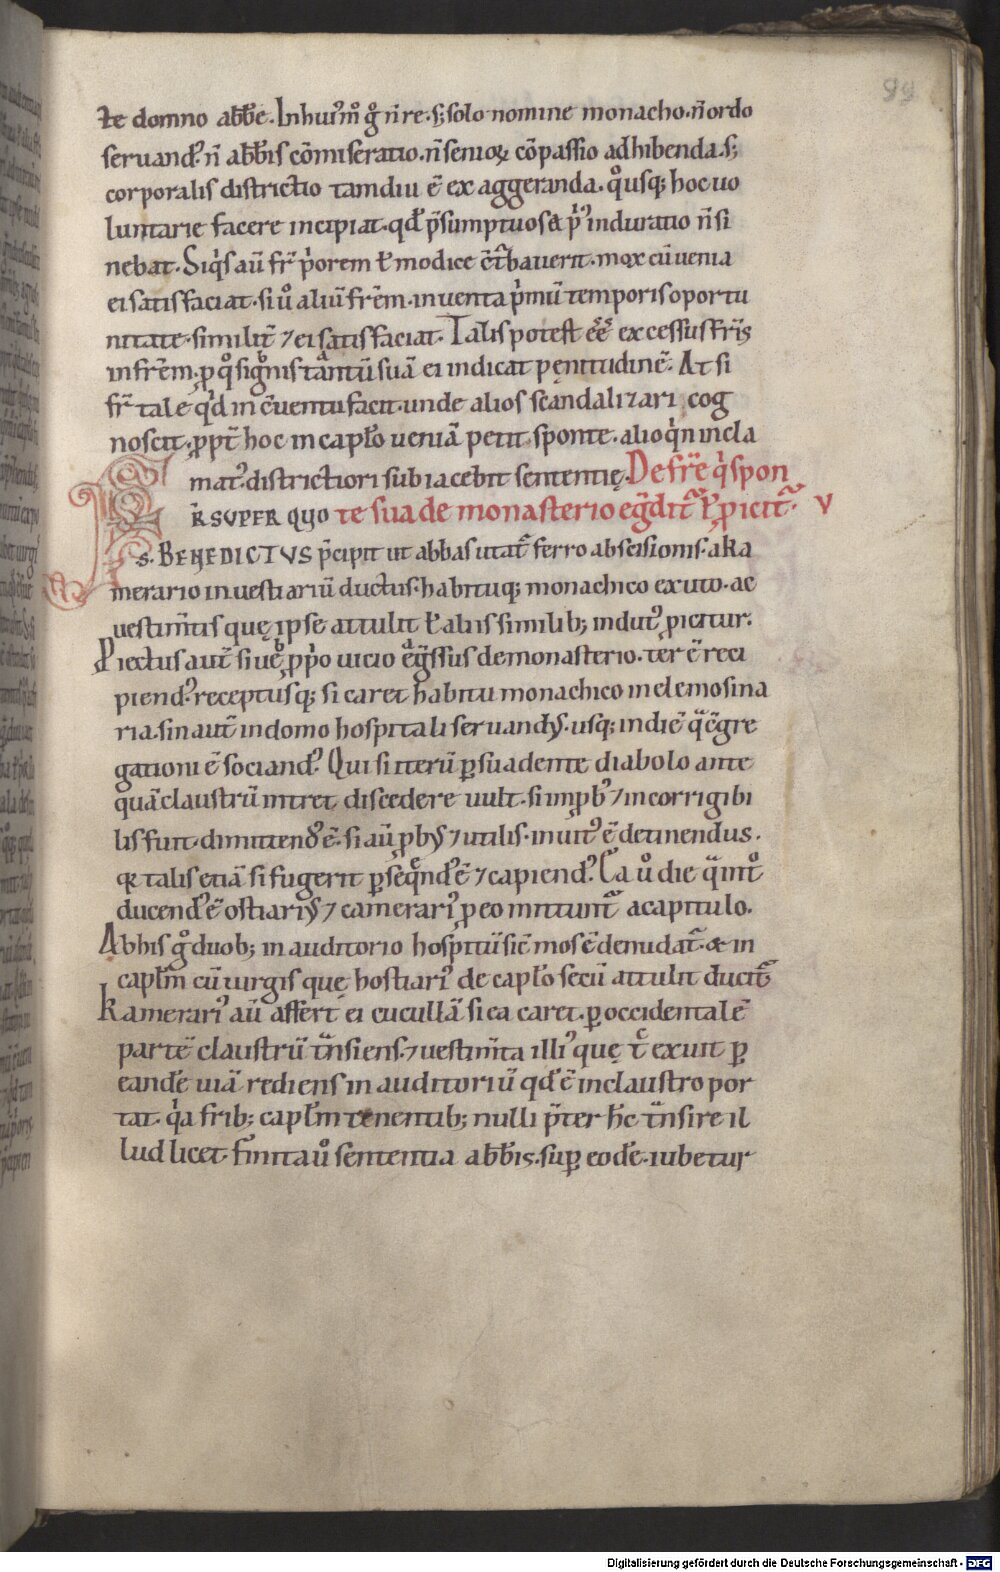 99
te domno abb̅e. In hui᷒m̊ g̊ n̅ re. s; solo nomine monacho. n̅ ordo
seruand᷒. n̅ abb̅is co̅miseratio. n̅ senioꝝ co̅passio adhibenda. s;
corporalis districtio tamdiu e̅ exaggeranda. qͦusq; hoc uo
luntarie facere incipiat. qd̅ p̅sumptuose & pͥ᷒ induratio n̅ si
nebat. Siqͥs au̅ fr̅ pͥorem ł modice c̅t̾bauerit. mox cu̅ uenia
ei satisfaciat. si ů aliu̅ fr̅em. inuenta pͥmu̅ temporis oportu
nitate. similit̅ ⁊ ei satisfaciat. Talis potest e̅e̅ excessus fr̅is
in fr̅em, ꝓ qͦ signis tantu̅ sua̅ ei indicat pęnitudine̅. At si
fr̅ tale qͥd in c̅uentu facit. unde alios scandalizari cog
noscit. ꝓpt̅ hoc in capłо uenia̅ petit sponte. alioqͥn incla
mat᷒. districtiori subiacebit sententię. De fr̅e qͥ spon
R̅ SUPER QUO te sua de monasterio eg̅dit᷑ ł ꝓicit᷑. V
S. BENEDICTUS p̅cipit ut abbas utat᷑ ferro abscisionis. a ka
merario in uestiariu̅ ductus. habituq; monachico exuto. ac
uestim̅tis quę ipse attulit ł aliis similib; indut᷒ ꝓicitur.
Piectus aut̅ siue ꝓpͥo uicio eg̅ssus de monasterio. ter e̅ reci
piend᷒. receptusq; si caret habitu monachico in elemosina
ria. sin aut̅ in domo hospitali seruand᷒. usq; in die̅ qͣ c̅gre
gationi e̅ sociand᷒. Qui si iteru̅ ꝑsuadente diabolo ante
qua̅ claustru̅ intret discedere uult. si imꝓb᷒ ⁊ incorrigibi
lis fuit dimittend᷒ e̅. si au̅ ꝓb᷒ ⁊ utilis. inuit᷒ e̅ detinendus.
& talis etia̅ si fugerit ꝑseqͦnd᷒ e̅ ⁊ capiend᷒. Ea ů die qͣ int̊
ducend᷒ e̅ ostiari᷒ ⁊ camerari᷒ ꝓ eo mittunt᷑ a capitulo.
Abbis g̊ duob; in auditorio hospitu̅ sic̅ mos e̅ denudat᷑. & in
capłm cu̅ uirgis quę hostiari᷒ de capło secu̅ attulit ducit᷑
Kamerari᷒ au̅ affert ei cuculla̅ si ea caret. ꝑ occidentale̅
parte̅ claustru̅ t̅nsiens. ⁊ uestim̅ta illi᷒ quę tc̅ exuit ꝑ
eande̅ uia̅ rediens in auditoriu̅ qd̅ e̅ in claustro por
tat. qͥa frib; capłm tenentib; nulli p̅ter hc̅ t̅nsire il
lud licet. finita ů sententia abb̅is. suꝑ eode̅. iubetur
Digitalisierung gefördert durch die Deutsche Forschungsgemeinschaft - DFG